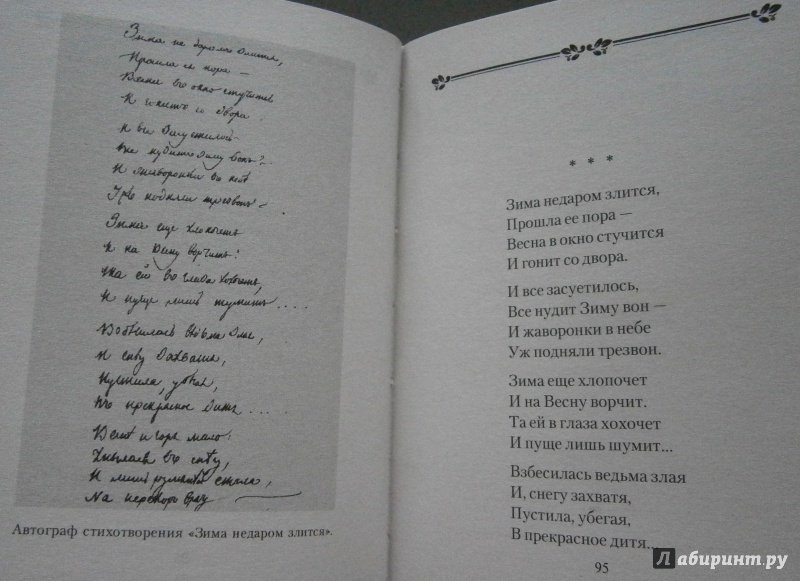 Зима не даромъ злится,
Прошла ея пора —
Весна въ окно стучится
И гонитъ со двора.
И все
Все нудитъ Зиму вонъ
И жаворонки въ небѣ
Ужъ подняли трезвонъ
Зима еще хлопочетъ
И на Весну ворчитъ:
Та ей въ глаза хохочетъ,
И пуще лишь шумитъ....
Взбѣсилась вѣдьма злая,
И снѣгу захватя,
Пустила, убѣгая,
Въ прекрасное дитя....
Веснѣ и горя мало:
Умылася въ снѣгу,
И лишь румянѣй стала,
На перекоръ врагу
Автограф стихотворения «Зима недаром злится».
* * *
Зима недаром злится,
Прошла ее пора —
Весна в окно стучится
И гонит со двора.
И все засуетилось,
Все нудит Зиму вон —
И жаворонки в небе
Уж подняли трезвон.
Зима еще хлопочет
И на Весну ворчит.
Та ей в глаза хохочет
И пуще лишь шумит...
Взбесилась ведьма злая
И, снегу захватя,
Пустила, убегая,
В прекрасное дитя...
95
Лабиринт.ру